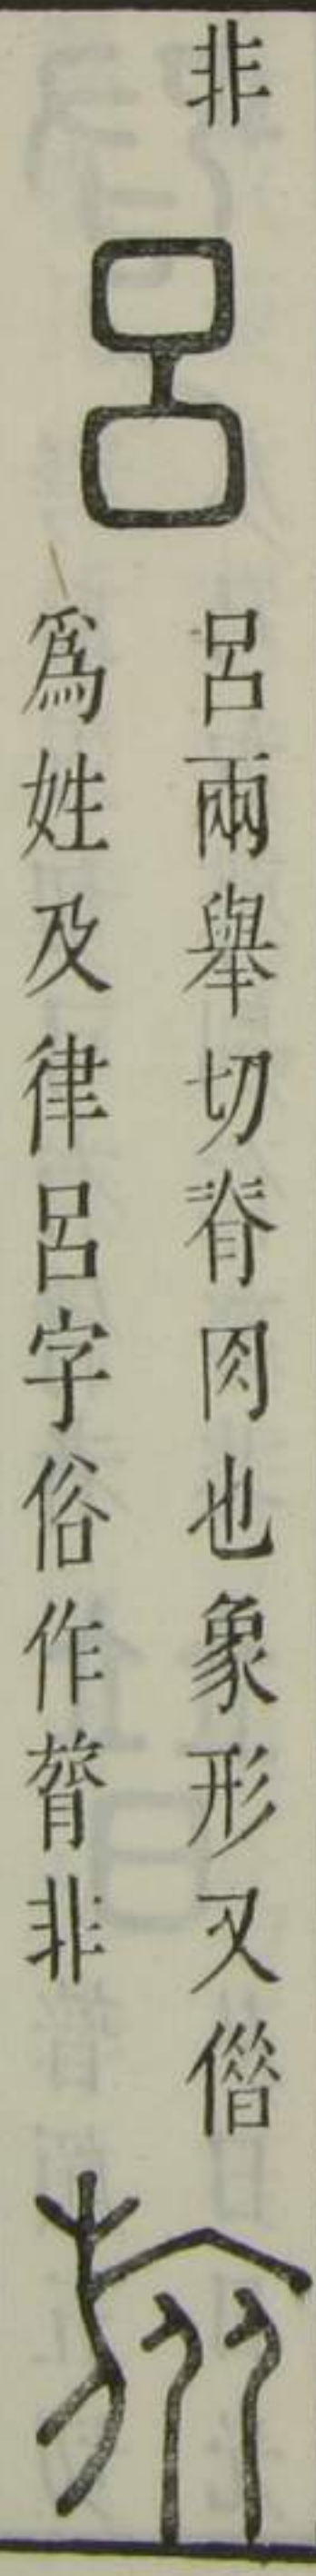 非
呂
呂兩舉切脊肉也象形又借
爲姓及律呂字俗作膂非
旅